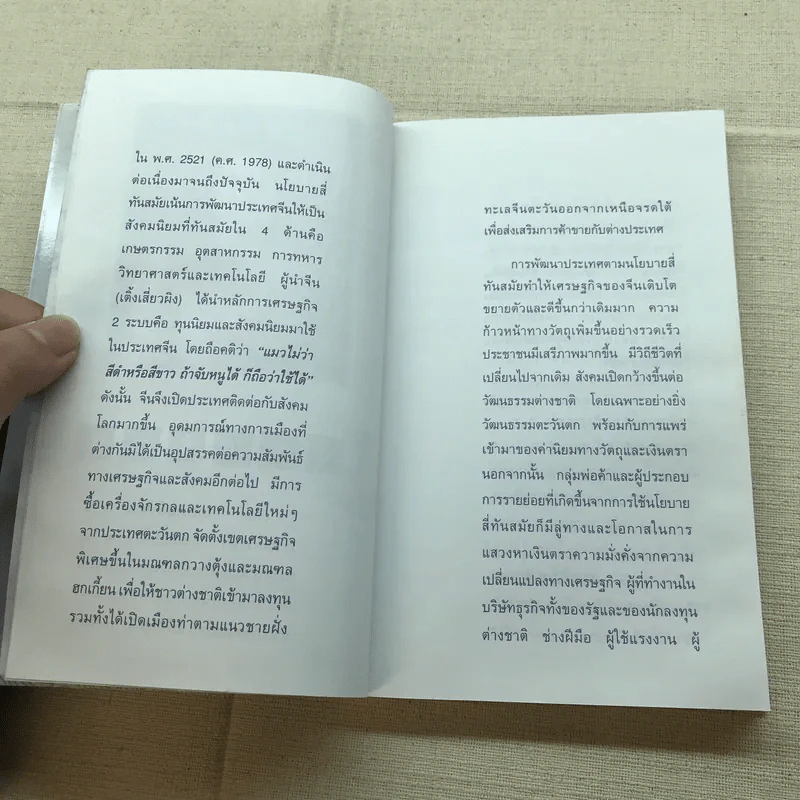 ใน พ.ศ. 2521 (ค.ศ. 1978) และดำเนิน
ต่อเนื่องมาจนถึงปัจจุบัน นโยบายสี่
ทันสมัยเน้นการพัฒนาประเทศจีนให้เป็น
สังคมนิยมที่ทันสมัยใน 4 ด้านคือ
เกษตรกรรม อุตสาหกรรม การทหาร
วิทยาศาสตร์และเทคโนโลยี ผู้นำจีน
(เติ้งเสี่ยวผิง) ได้นำหลักการเศรษฐกิจ
2 ระบบคือ ทุนนิยมและสังคมนิยมมาใช้
ในประเทศจีน โดยถือคติว่า “แมวไม่ว่า
สีดำหรือสีขาว ถ้าจับหนูได้ ก็ถือว่าใช้ได้”
ดังนั้น จีนจึงเปิดประเทศติดต่อกับสังคม
โลกมากขึ้น อุดมการณ์ทางการเมืองที่
ต่างกันมิได้เป็นอุปสรรคต่อความสัมพันธ์
ทางเศรษฐกิจและสังคมอีกต่อไป มีการ
ซื้อเครื่องจักรกลและเทคโนโลยีใหม่ๆ
จากประเทศตะวันตก จัดตั้งเขตเศรษฐกิจ
พิเศษขึ้นในมณฑลกวางตุ้งและมณฑล
ฮกเกี้ยน เพื่อให้ชาวต่างชาติเข้ามาลงทุน
รวมทั้งได้เปิดเมืองท่าตามแนวชายฝั่ง
ทะเลจีนตะวันออกจากเหนือจรดใต้
เพื่อส่งเสริมการค้าขายกับต่างประเทศ
การพัฒนาประเทศตามนโยบายสี่
ทันสมัยทำให้เศรษฐกิจของจีนเติบโต
ขยายตัวและดีขึ้นกว่าเดิมมาก ความ
ก้าวหน้าทางวัตถุเพิ่มขึ้นอย่างรวดเร็ว
ประชาชนมีเสรีภาพมากขึ้น มีวิถีชีวิตที่
เปลี่ยนไปจากเดิม สังคมเปิดกว้างขึ้นต่อ
วัฒนธรรมต่างชาติ โดยเฉพาะอย่างยิ่ง
วัฒนธรรมตะวันตก พร้อมกับการแพร่
เข้ามาของค่านิยมทางวัตถุและเงินตรา
นอกจากนั้น กลุ่มพ่อค้าและผู้ประกอบ
การรายย่อยที่เกิดขึ้นจากการใช้นโยบาย
สี่ทันสมัยก็มีลู่ทางและโอกาสในการ
แสวงหาเงินตราความมั่งคั่งจากความ
เปลี่ยนแปลงทางเศรษฐกิจ ผู้ที่ทำงานใน
บริษัทธุรกิจทั้งของรัฐและของนักลงทุน
ต่างชาติ ช่างฝีมือ ผู้ใช้แรงงาน ผู้